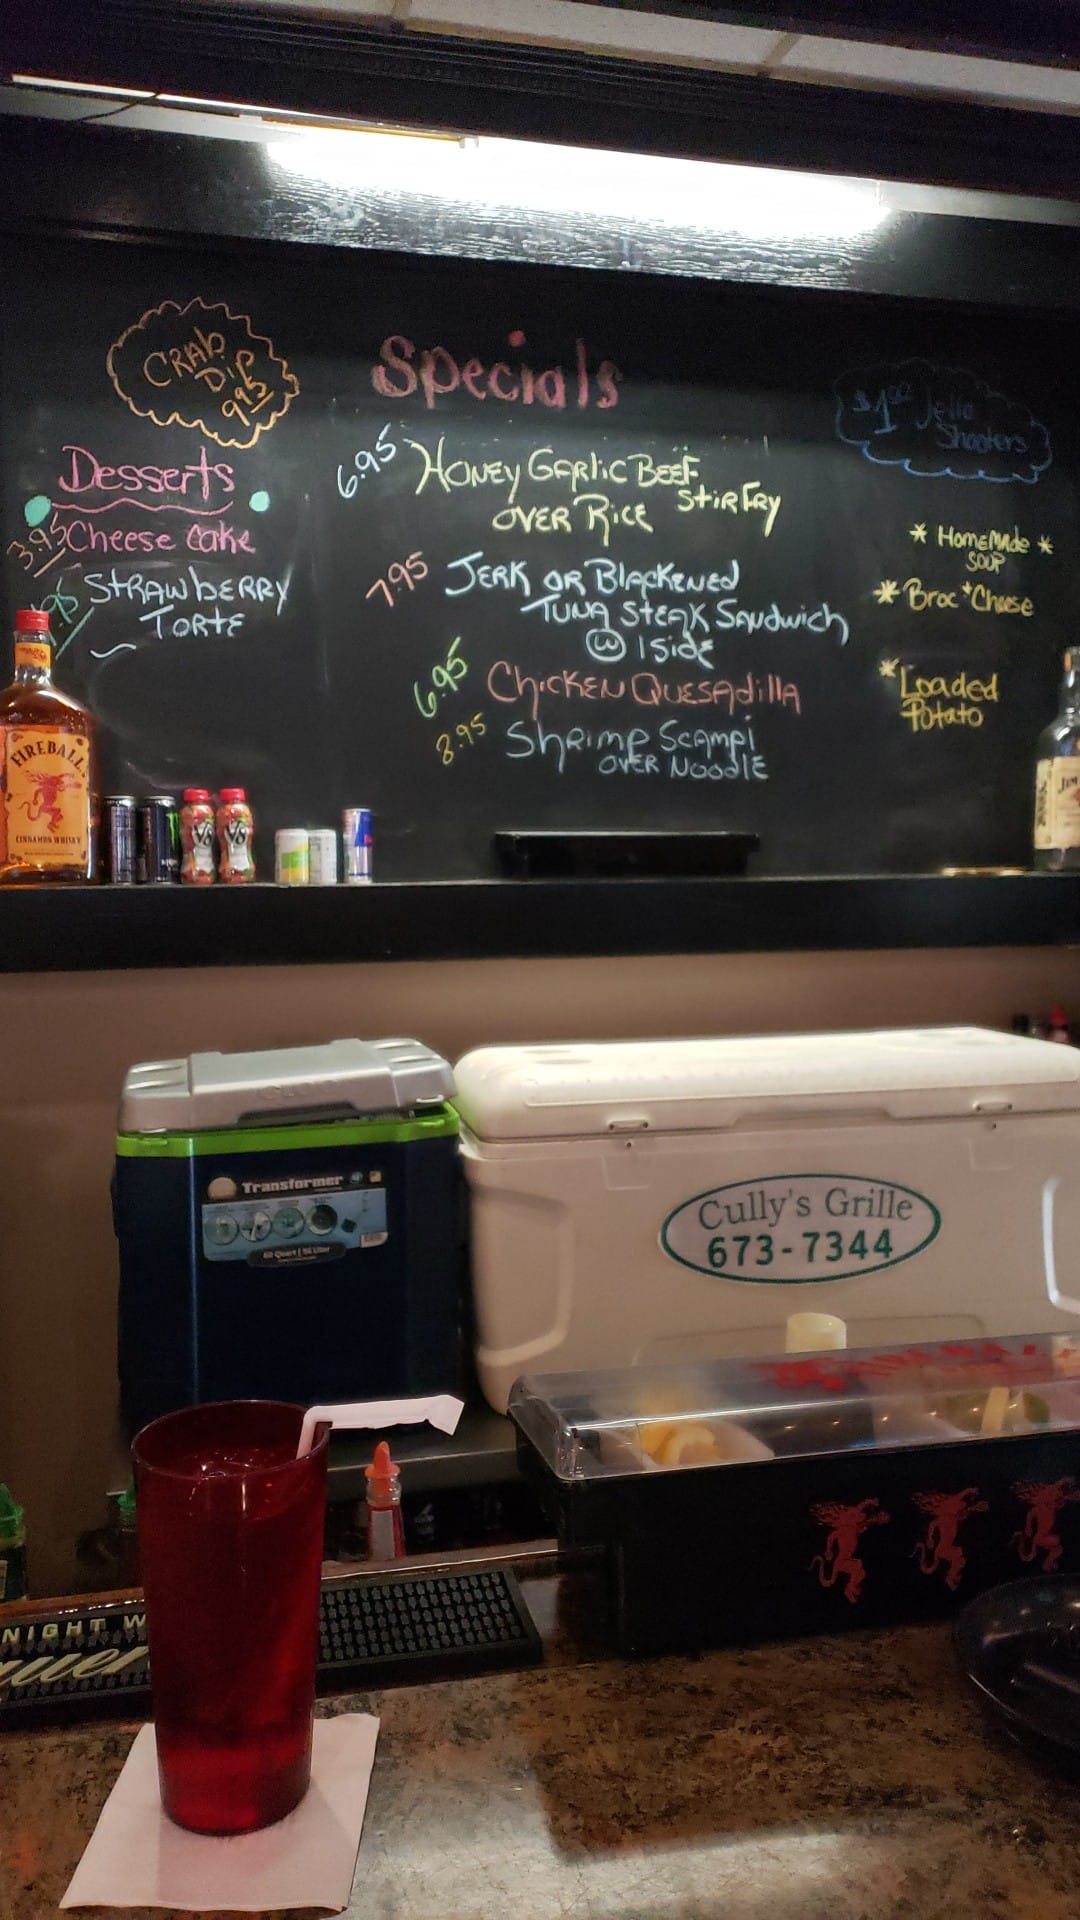 Crab
Dip
9.95
Specials
$1.00 Jello
Shooters
Desserts
3.95 Cheese Cake
Strawberry
Torte
6.95 Honey Garlic Beef
Stir Fry
over Rice
7.95 Jerk or Blackened
Tuna Steak Sandwich
W 1 side
6.95 Chicken Quesadilla
8.95 Shrimp Scampi
over Noodle
* Homemade *
Soup
* Broc * Cheese
* Loaded
Potato
FIREBALL
CINNAMON WHISKY
V8
V8
JIM
Transformer
60 Quart | 56 Liter
Cully's Grille
673-7344
NIGHT W